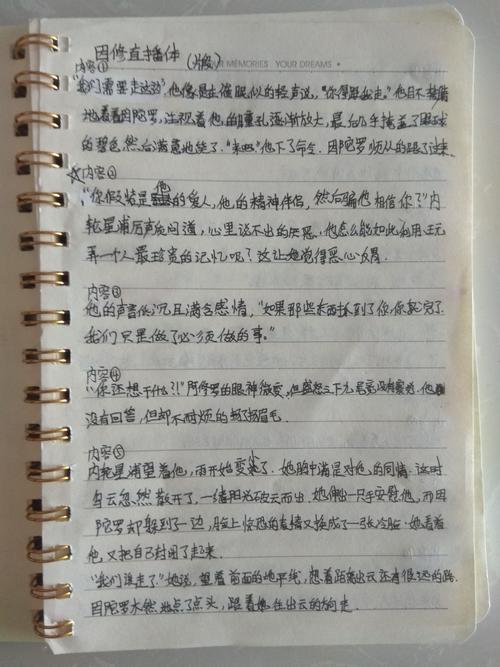 因修直播体（片段）
UR MEMORIES YOUR DREAMS
内容①
"我们需要走这边"，他像是在催眠似的轻声说，"你得跟我走。"他目不转睛
地看着因陀罗，注视着他的瞳孔逐渐放大，最后几乎掩盖了眼球
的碧色，然后满意地笑了。"来吧"他下了命令。因陀罗顺从的跟了过来。
☆内容②
"你假装是他的爱人，他的精神伴侣，然后骗他相信你了？"内
轮星浦厉声质问道，心里说不出的厌恶，他怎么能如此利用、玩
弄一个人最珍贵的记忆呢？这让她觉得恶心反胃。
内容③
他的声音低沉且满含感情，"如果那些东西抓到了你，你就完了。
我们只是做了必须做的事。"
内容④
"你还想干什么？！"阿修罗的眼神微寒，但盛怒之下尤
没有回答，但却不耐烦的扬了扬眉毛。
内容⑤
内轮星浦望着他，雨开始变小了。她胸中满是对他的同情。这时
乌云忽然散开了，一缕阳光破云而出，她伸出一只手安慰他，而因
陀罗却躲到了一边，脸上惊恐的表情又换成了一张冷脸。她看着
他又把自己封闭了起来。
"我们该走了。"她说，望着前面的地平线，想着距离出云还有很远的路。
因陀罗木然地点了点头，跟着她往出云的方向走。